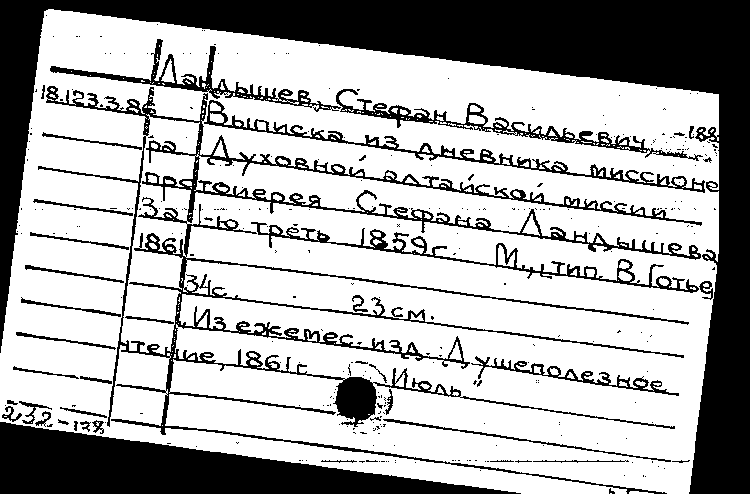 Ландышев, Стефан Васильевич, -188
18.123.3.86 Выписка из дневника миссионе
ра Духовной алтайской миссии
протоиерея Стефана Ландышева
За 1-ю треть 1859г. М., тип. В. Готье
1861
34с. 23см.
„Из ежемес. изд. Душеполезное
чтение, 1861г. Июль"
232-128